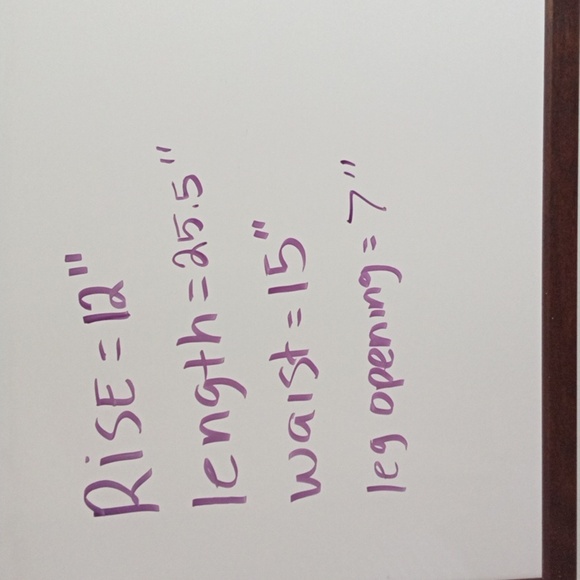 RiSE = 12"
length = 25.5"
waist = 15"
leg opening = 7"